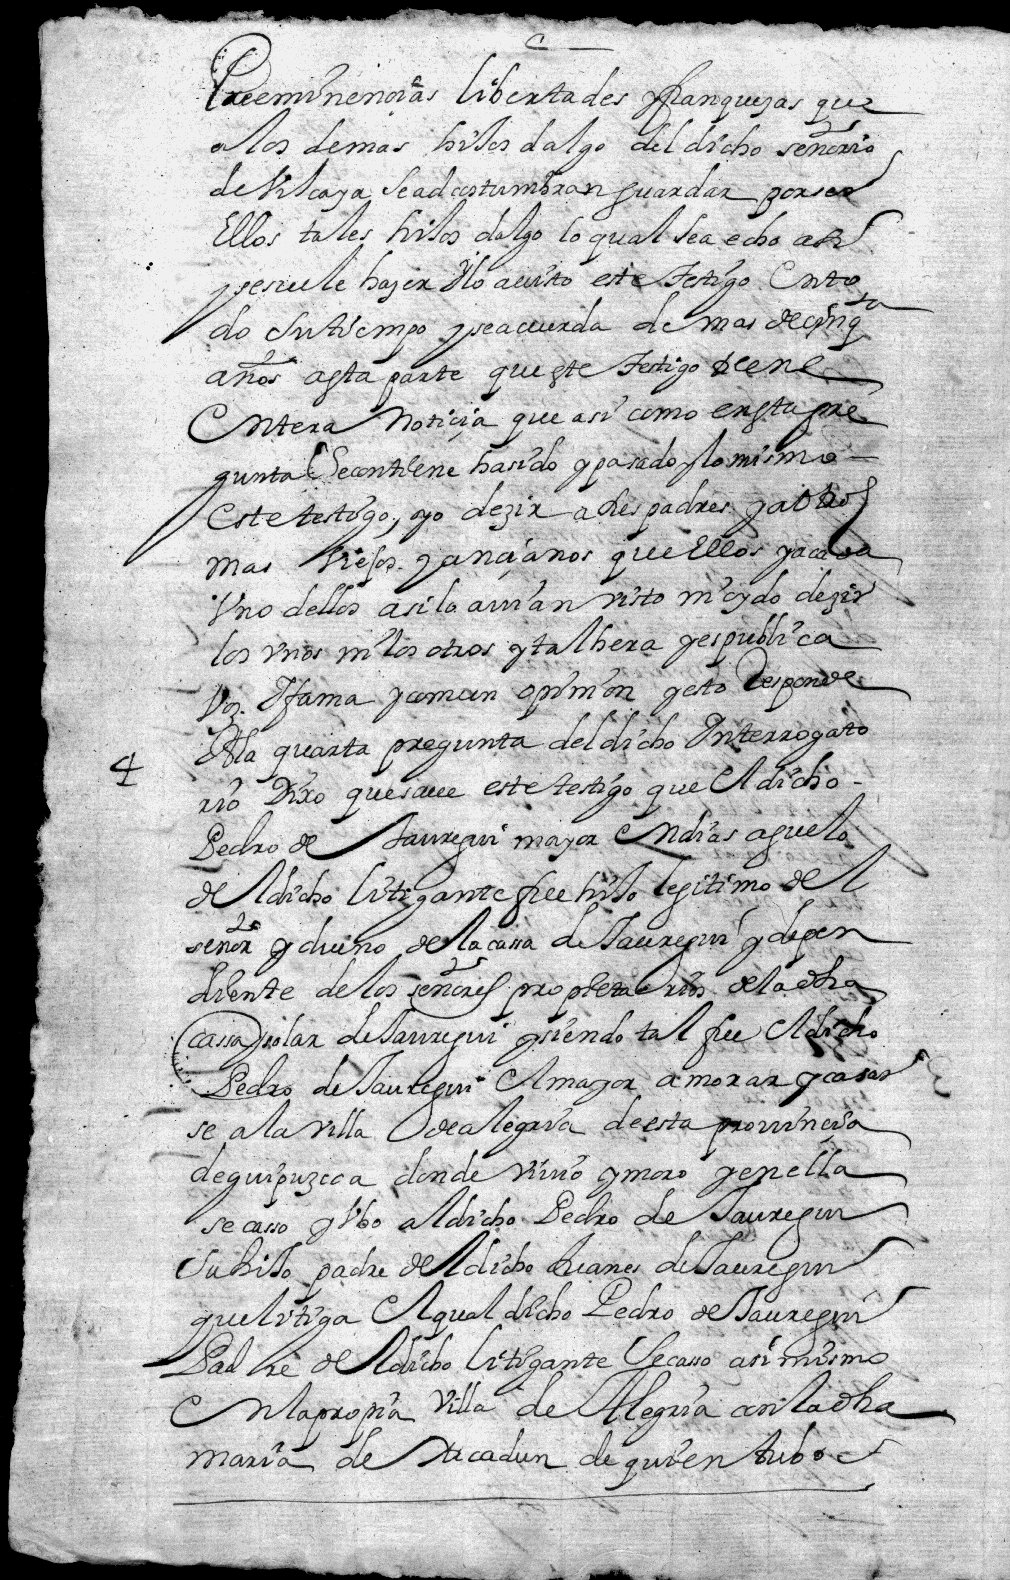 Preeminencias libertades y franquezas que
a los demas hijos dalgo del dicho señorio
de Vizcaya se acostumbran guardar por ser
Ellos tales hijos dalgo lo qual sea echo asi
y se suele hazer y lo a visto este testigo En to
do su tiempo y se acuerda de mas de cinqta
años a esta parte que este testigo tiene
Entera noticia que asi como en esta pre
gunta Se contiene ha sido y pasado y lo mismo
Este testigo, oyo dezir a sus padres y a otros
mas Viejos y ancianos que Ellos y a cada
Uno dellos asi lo avian visto ni oydo dezir
los unos ni los otros y tal hera y es publica
Voz y fama y comun opinion y esto Responde
4 A la quarta pregunta del dicho Interrogato
rio Dixo que saue este testigo que El dicho
Pedro de Jauregui mayor En dias aguelo
del dicho litigante fue hijo legitimo del
señor y dueno de la cassa de Jauregui y depen
diente de los señores propietarios de la dha
cassa y solar de Jauregui y siendo tal fue El dicho
Pedro de Jauregui El mayor a morar y casar
se a la villa de alegria de esta provincia
de guipuzcoa donde vivio y moro y en ella
se casso y Ubo al dicho Pedro de Jauregui
Su hijo padre del dicho Juanes de Jauregui
que litiga El qual dicho Pedro de Jauregui
Padre del dicho litigante Se casso asi mismo
En la propia Villa de Alegria con la dha
maria de de quien tubo